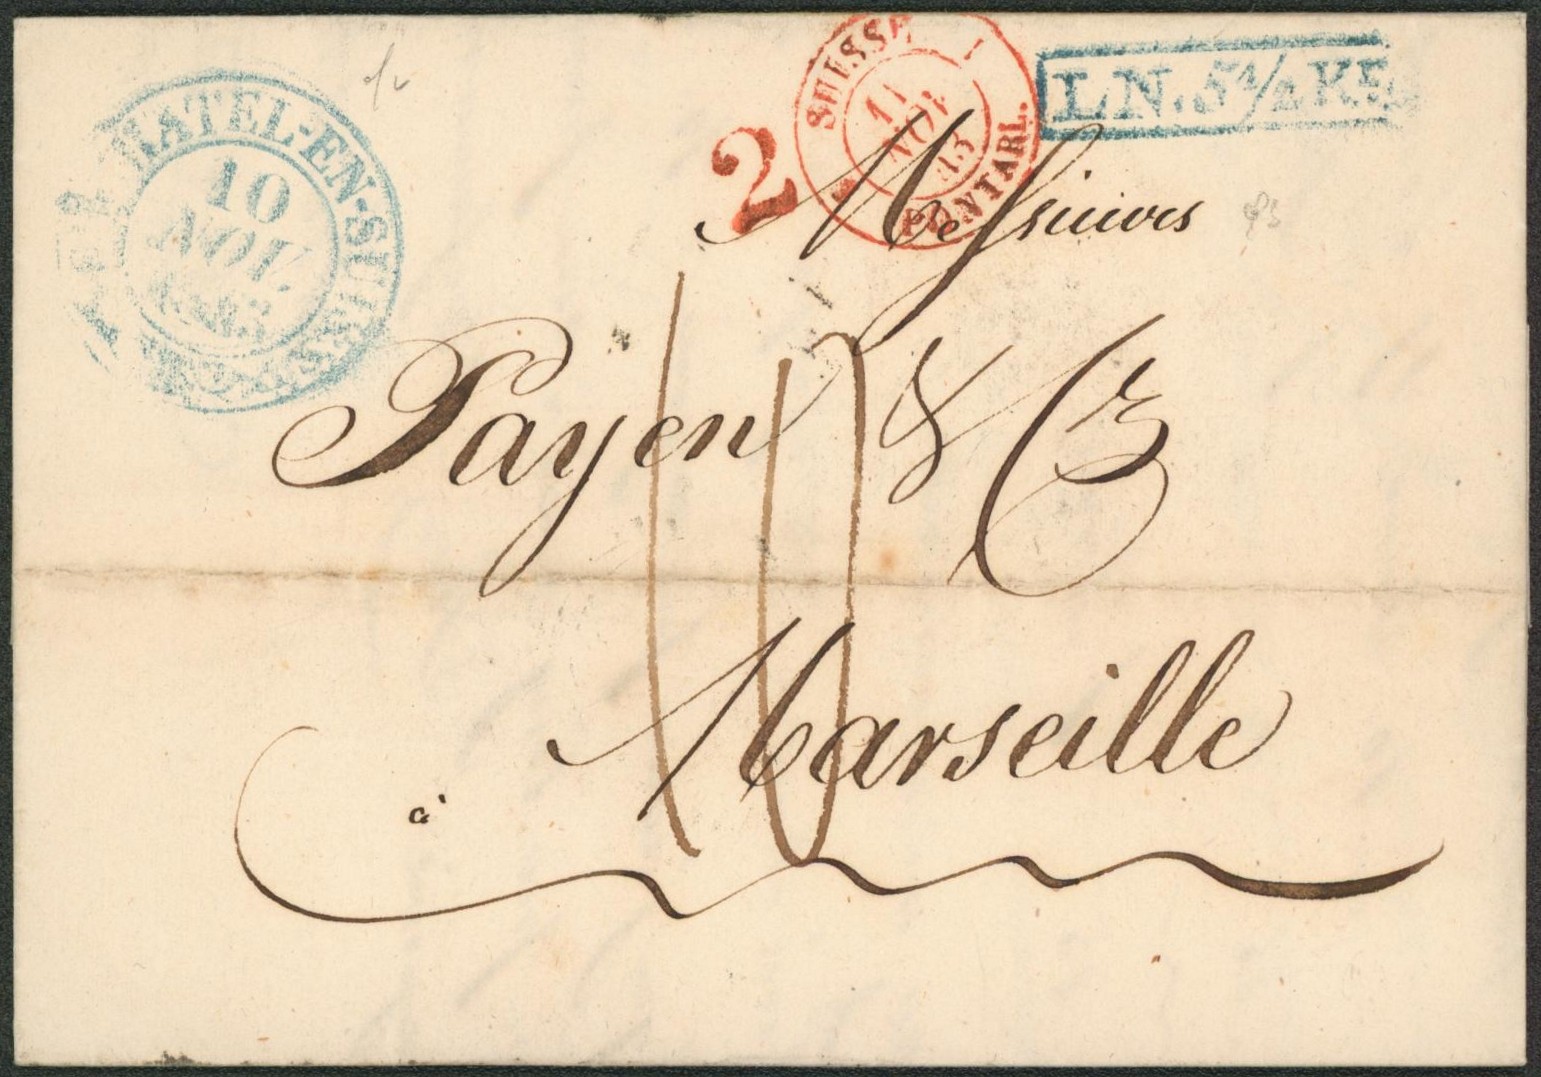 HATEL-EN-SUISSE
10
NOV.
2
SUISSE 1
11
NOV
43
PONTARL.
LN. 5 1/2 Kr
Messieurs
Payen & C
10
à Marseille